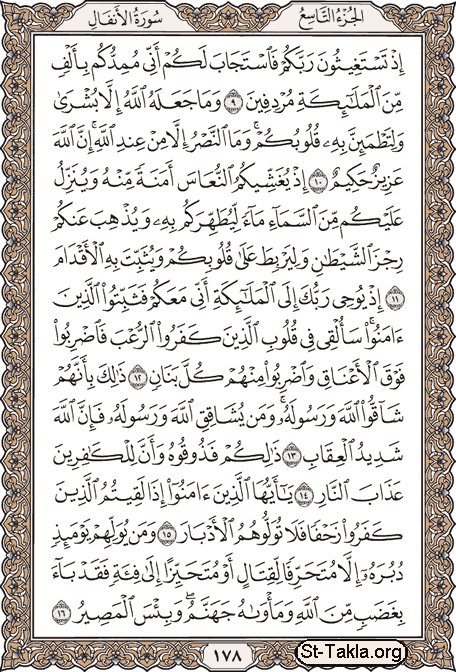 الجزء التاسع
سورة الأنفال
إِذْ تَسْتَغِيثُونَ رَبَّكُمْ فَٱسْتَجَابَ لَكُمْ أَنِّى مُمِدُّكُم بِأَلْفٍ
مِّنَ ٱلْمَلَٰٓئِكَةِ مُرْدِفِينَ ٩ وَمَا جَعَلَهُ ٱللَّهُ إِلَّا بُشْرَىٰ
وَلِتَطْمَئِنَّ بِهِۦ قُلُوبُكُمْ ۚ وَمَا ٱلنَّصْرُ إِلَّا مِنْ عِندِ ٱللَّهِ ۚ إِنَّ ٱللَّهَ
عَزِيزٌ حَكِيمٌ ١٠ إِذْ يُغَشِّيكُمُ ٱلنُّعَاسَ أَمَنَةً مِّنْهُ وَيُنَزِّلُ
عَلَيْكُم مِّنَ ٱلسَّمَآءِ مَآءً لِّيُطَهِّرَكُم بِهِۦ وَيُذْهِبَ عَنكُمْ
رِجْزَ ٱلشَّيْطَٰنِ وَلِيَرْبِطَ عَلَىٰ قُلُوبِكُمْ وَيُثَبِّتَ بِهِ ٱلْأَقْدَامَ
١١ إِذْ يُوحِى رَبُّكَ إِلَى ٱلْمَلَٰٓئِكَةِ أَنِّى مَعَكُمْ فَثَبِّتُوا۟ ٱلَّذِينَ
ءَامَنُوا۟ ۚ سَأُلْقِى فِى قُلُوبِ ٱلَّذِينَ كَفَرُوا۟ ٱلرُّعْبَ فَٱضْرِبُوا۟
فَوْقَ ٱلْأَعْنَاقِ وَٱضْرِبُوا۟ مِنْهُمْ كُلَّ بَنَانٍ ١٢ ذَٰلِكَ بِأَنَّهُمْ
شَآقُّوا۟ ٱللَّهَ وَرَسُولَهُۥ ۚ وَمَن يُشَاقِقِ ٱللَّهَ وَرَسُولَهُۥ فَإِنَّ ٱللَّهَ
شَدِيدُ ٱلْعِقَابِ ١٣ ذَٰلِكُمْ فَذُوقُوهُ وَأَنَّ لِلْكَٰفِرِينَ
عَذَابَ ٱلنَّارِ ١٤ يَٰٓأَيُّهَا ٱلَّذِينَ ءَامَنُوٓا۟ إِذَا لَقِيتُمُ ٱلَّذِينَ
كَفَرُوا۟ زَحْفًا فَلَا تُوَلُّوهُمُ ٱلْأَدْبَارَ ١٥ وَمَن يُوَلِّهِمْ يَوْمَئِذٍ
دُبُرَهُۥٓ إِلَّا مُتَحَرِّفًا لِّقِتَالٍ أَوْ مُتَحَيِّزًا إِلَىٰ فِئَةٍ فَقَدْ بَآءَ
بِغَضَبٍ مِّنَ ٱللَّهِ وَمَأْوَىٰهُ جَهَنَّمُ ۖ وَبِئْسَ ٱلْمَصِيرُ ١٦
١٧٨
St-Takla.org